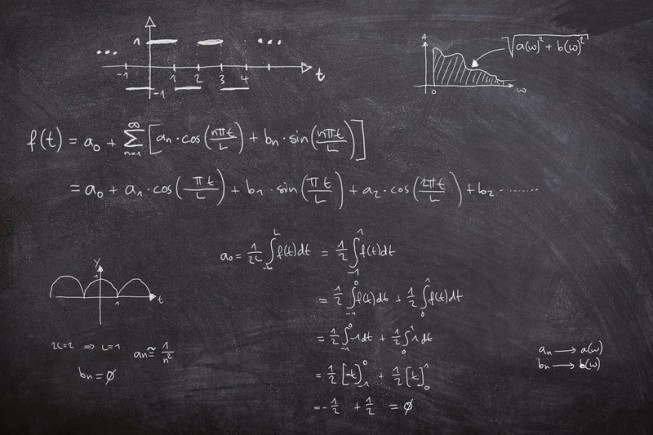 ... 1 ...
-1 1 2 3 4 t
-1
A √(a(ω)² + b(ω)²)
0 ω
f(t) = a₀ + ∑ₙ₌₁^∞ [aₙ·cos(nπt/L) + bₙ·sin(nπt/L)]
= a₀ + a₁·cos(πt/L) + b₁·sin(πt/L) + a₂·cos(2πt/L) + b₂ ........
a₀ = 1/2L ∫₋L^L f(t)dt = 1/2 ∫₋₁^1 f(t)dt
= 1/2 ∫₋₁^0 f(t)dt + 1/2 ∫₀^1 f(t)dt
y
1
1 t
= 1/2 ∫₋₁^0 -1dt + 1/2 ∫₀^1 1dt
2L=2 ⇒ L=1 aₙ ≅ 1/n²
bₙ = ∅
aₙ → a(ω)
bₙ → b(ω)
= 1/2 [-t]₋₁^0 + 1/2 [t]₀^1
= -1/2 + 1/2 = ∅